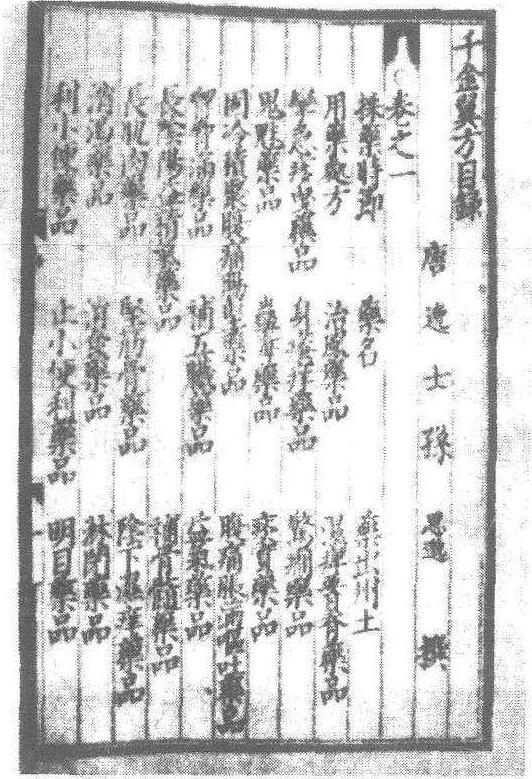 千金翼方目録
唐逸士孫思邈撰
卷之一
採藥時節 藥名 藥出州土
用藥處方 治風藥品 濕痺腰脊藥品
攣急藥品 身瘙痒藥品 驚癇藥品
鬼魅藥品 蠱毒藥品 痰實藥品
固冷積聚腹痛腸堅藥品 腹痛脹滿嘔吐藥品
胸脅滿藥品 補五臟藥品 益氣藥品
長陰陽益精氣藥品 補骨髓藥品
長肌肉藥品 堅筋骨藥品 陰下濕痒藥品
消渴藥品 消食藥品 淋閉藥品
利小便藥品 止小便利藥品 明目藥品